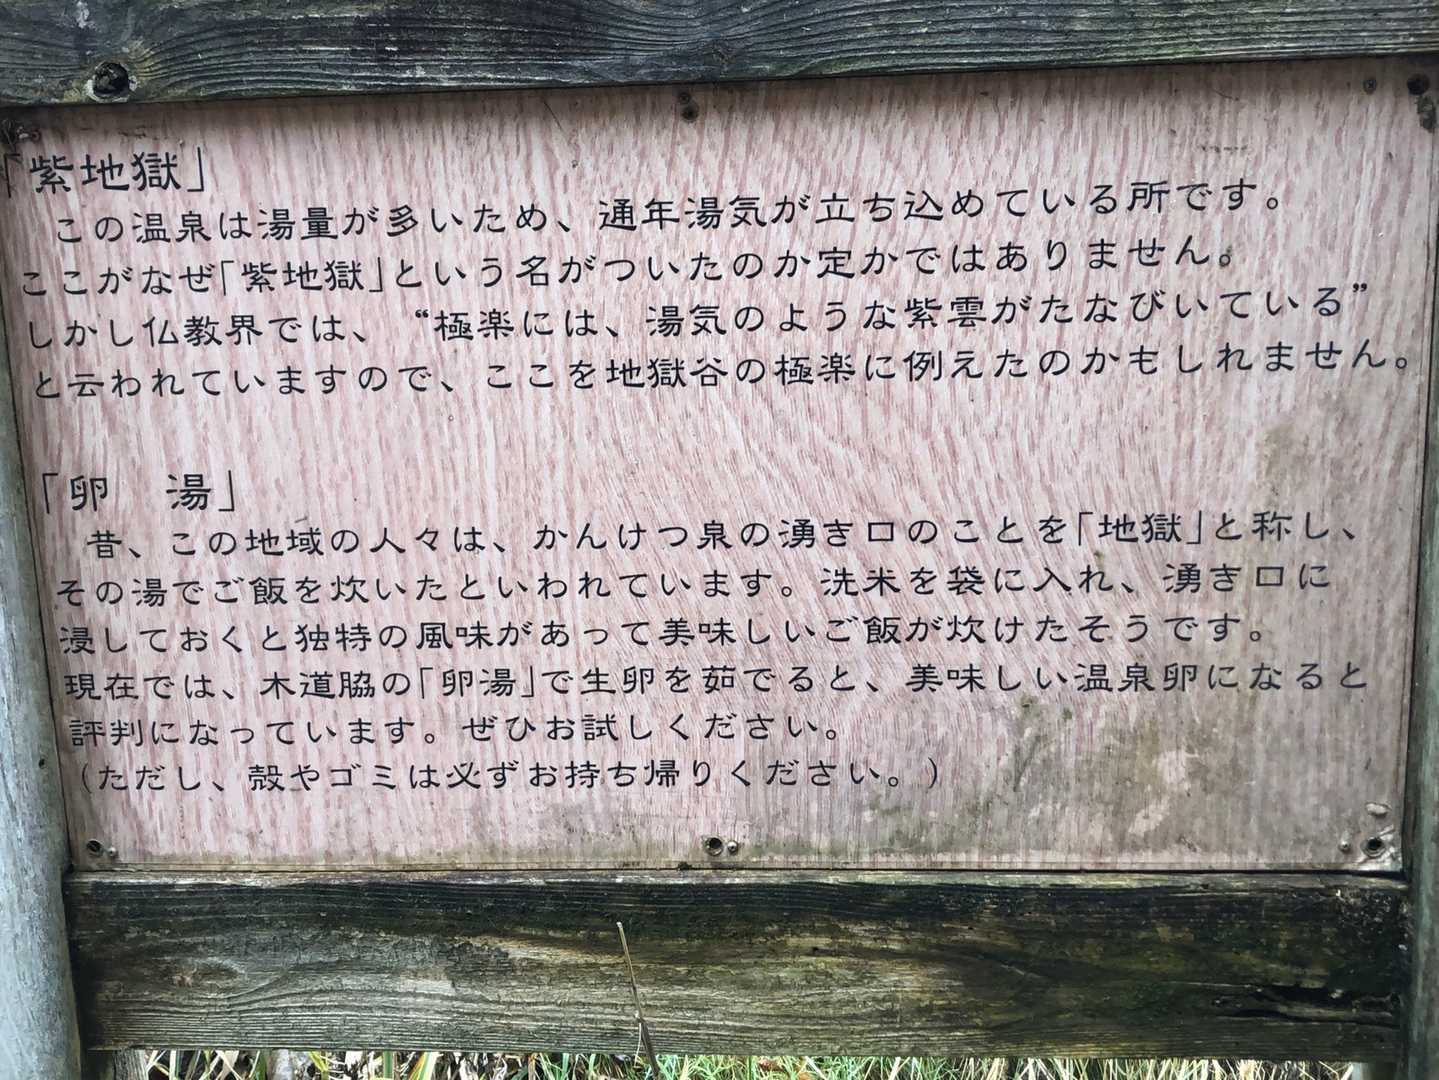 「紫地獄」
この温泉は湯量が多いため、通年湯気が立ち込めている所です。
ここがなぜ「紫地獄」という名がついたのか定かではありません。
しかし仏教界では、“極楽には、湯気のような紫雲がたなびいている”
と云われていますので、ここを地獄谷の極楽に例えたのかもしれません。
「卵　湯」
昔、この地域の人々は、かんけつ泉の湧き口のことを「地獄」と称し、
その湯でご飯を炊いたといわれています。洗米を袋に入れ、湧き口に
浸しておくと独特の風味があって美味しいご飯が炊けたそうです。
現在では、木道脇の「卵湯」で生卵を茹でると、美味しい温泉卵になると
評判になっています。ぜひお試しください。
（ただし、殻やゴミは必ずお持ち帰りください。）